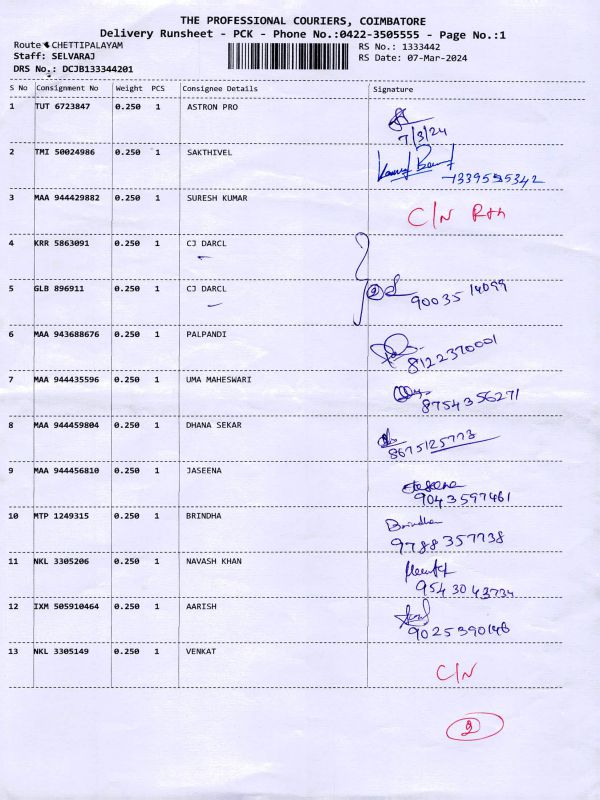 THE PROFESSIONAL COURIERS, COIMBATORE
Delivery Runsheet - PCK - Phone No.:0422-3505555 - Page No.:1
Route : CHETTIPALAYAM
RS No.: 1333442
Staff: SELVARAJ
RS Date: 07-Mar-2024
DRS No.: DCJB133344201
S No Consignment No Weight PCS Consignee Details Signature
1 TUT 6723847 0.250 1 ASTRON PRO
7/3/24
2 TMI 50024986 0.250 1 SAKTHIVEL
7339595342
3 MAA 944429882 0.250 1 SURESH KUMAR
C/N
4 KRR 5863091 0.250 1 CJ DARCL
5 GLB 896911 0.250 1 CJ DARCL
2
9003514099
6 MAA 943688676 0.250 1 PALPANDI
8122370001
7 MAA 944435596 0.250 1 UMA MAHESWARI
8754356271
8 MAA 944459804 0.250 1 DHANA SEKAR
8675125773
9 MAA 944456810 0.250 1 JASEENA
Jaseena
9043597461
10 MTP 1249315 0.250 1 BRINDHA
Brindha
9788357738
11 NKL 3305206 0.250 1 NAVASH KHAN
9543043734
12 IXM 505910464 0.250 1 AARISH
9025390146
13 NKL 3305149 0.250 1 VENKAT
C/N
2